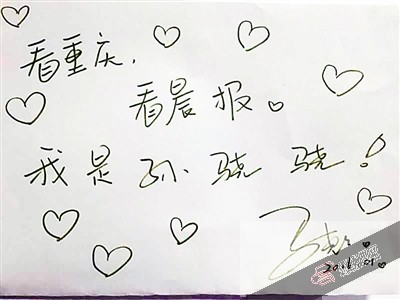 看重庆，
看晨报。
我是孙骁骁！
2016.01